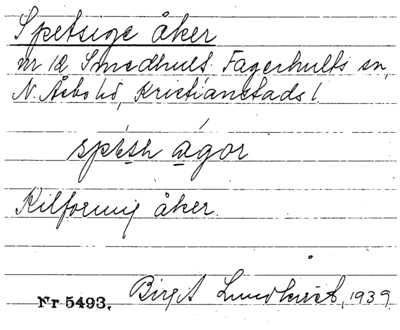 Spetsige åker
nr 12 Smedhult. Fagerhults sn,
N. Åsbo hd, Kristianstads l.
ågor
Kilformig åker.
Nr 5493. Birgit Lundkvist, 1939